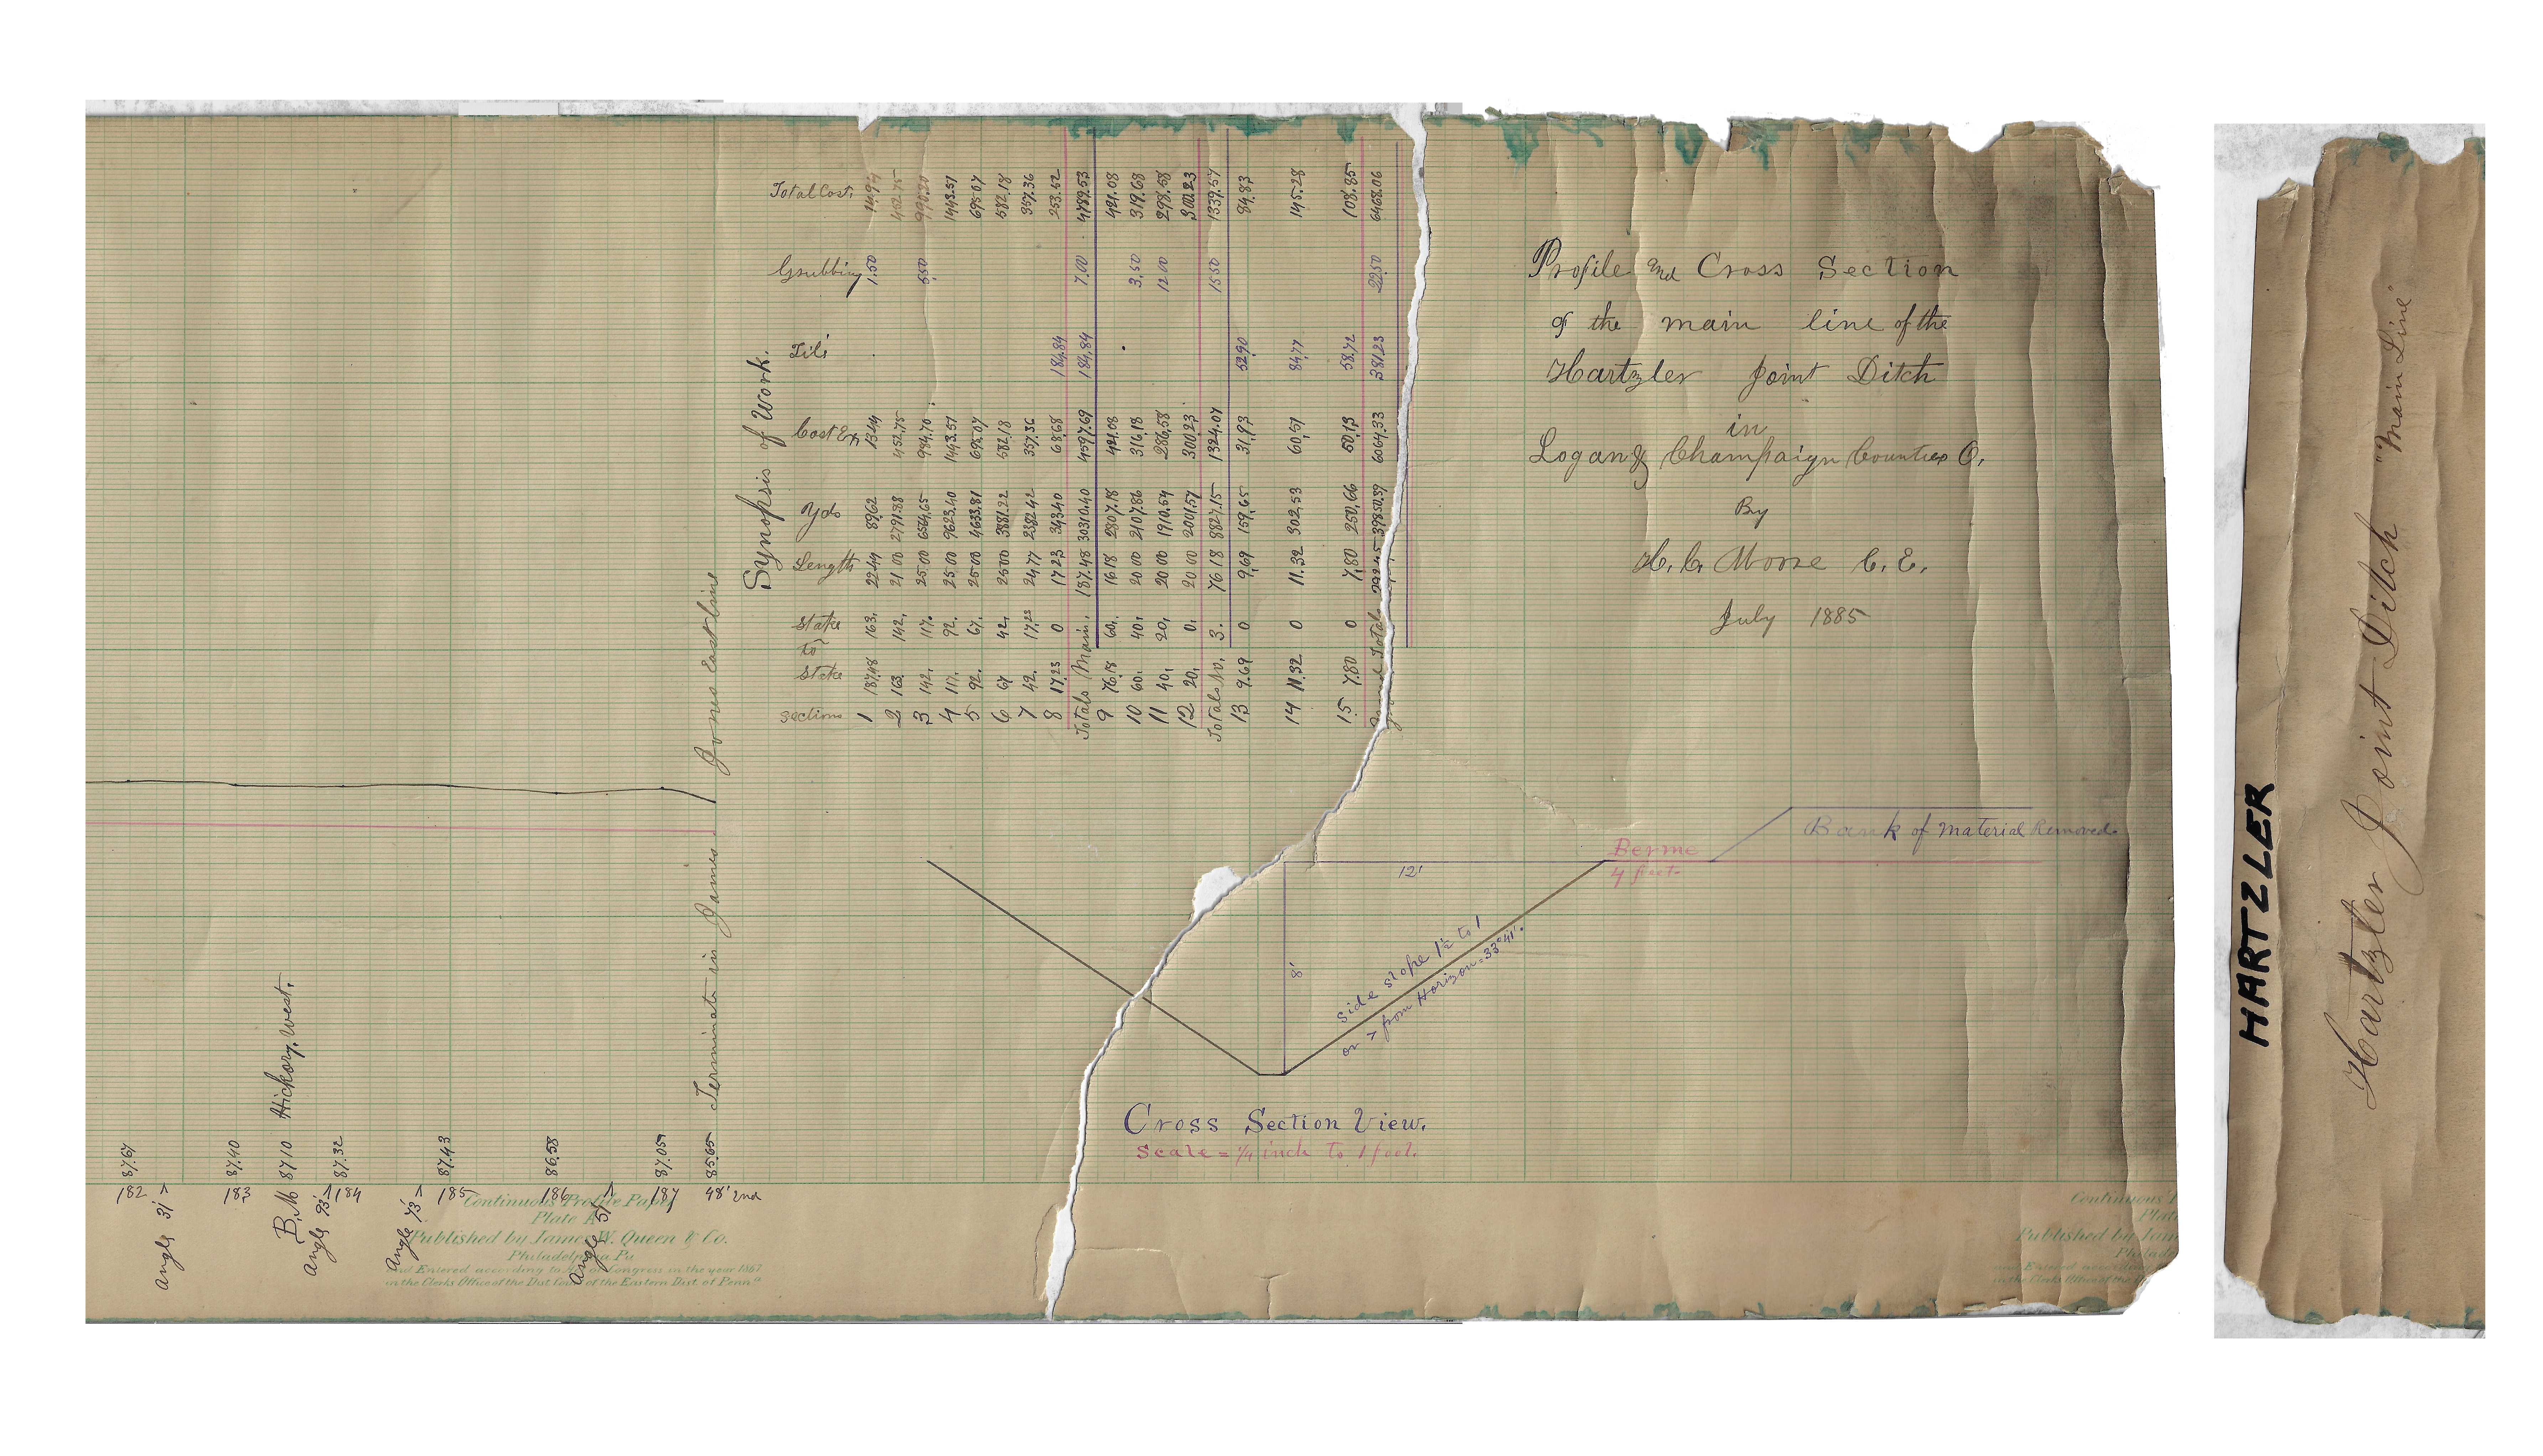 Profile and Cross Section
of the main line of the
Hartzler Joint Ditch
in
Logan & Champaign Counties O.
By
H. C. Moore C. E.
July 1885
Synopsis of Work.
Sections Stake to Stake Length Yds Cost Ex. Grubbing Total Cost.
1 187.48 163. 24.49 89.62 13.44 1.50 14.94
2 163. 142. 21 00 2791.88 452.75 452.75
3 142. 117. 25.00 6564.65 984.70 5.50 990.20
4 117. 92. 25.00 9623.40 1443.51 1443.51
5 92. 67. 25.00 4633.81 695.07 695.07
6 67 42. 25.00 3881.22 582.18 582.18
7 42. 17.23 24.77 2382.42 357.36 357.36
8 17.23 0 17.23 343.40 68.68 184.84 253.52
Totals Main. 187.48 30310.40 4597.69 184.84 7.00 4789.53
9 76.18 60. 16.18 2807.18 421.08 421.08
10 60. 40. 20 00 2107.86 316.18 3.50 319.68
11 40. 20. 20 00 1910.54 286.58 12 00 298.58
12 20. 0. 20 00 2001.57 300.23 300.23
Totals No. 3. 76.18 8827.15 1324.07 15.50 1339.57
13 9.69 0 9.69 159.65 31.93 52.90 84.83
14 11.32 0 11.32 302.53 60.51 84.77 145.28
15 7.80 0 7.80 250.66 50.13 58.72 108.85
Total 39850.39 6064.33 381.23 22.50 6468.06
Terminates in James Jones East line
Berme
4 feet
Bank of material Removed.
12'
8'
Side slope 1½ to 1
or > from Horizon = 33°41'.
Cross Section View.
Scale = ¼ inch to 1 foot.
87.67 87.40 87.32 87.43 86.58 87.05 85.65
182 183 184 185 186 187 48' 2nd
B.M 87 10 Hickory, West.
Angle 31'
Angle 93'
Angle 73'
Angle 51'
Continuous Profile Paper
Plate A
Published by James W. Queen & Co.
Philadelphia Pa
and Entered according to Act of Congress in the year 1867
in the Clerks Office of the Dist. Court of the Eastern Dist. of Penna
Continuous
Plate
Published by Jam
Philad
and Entered according
in the Clerks Office of the
HARTZLER
Hartzler Joint Ditch "Main Line"